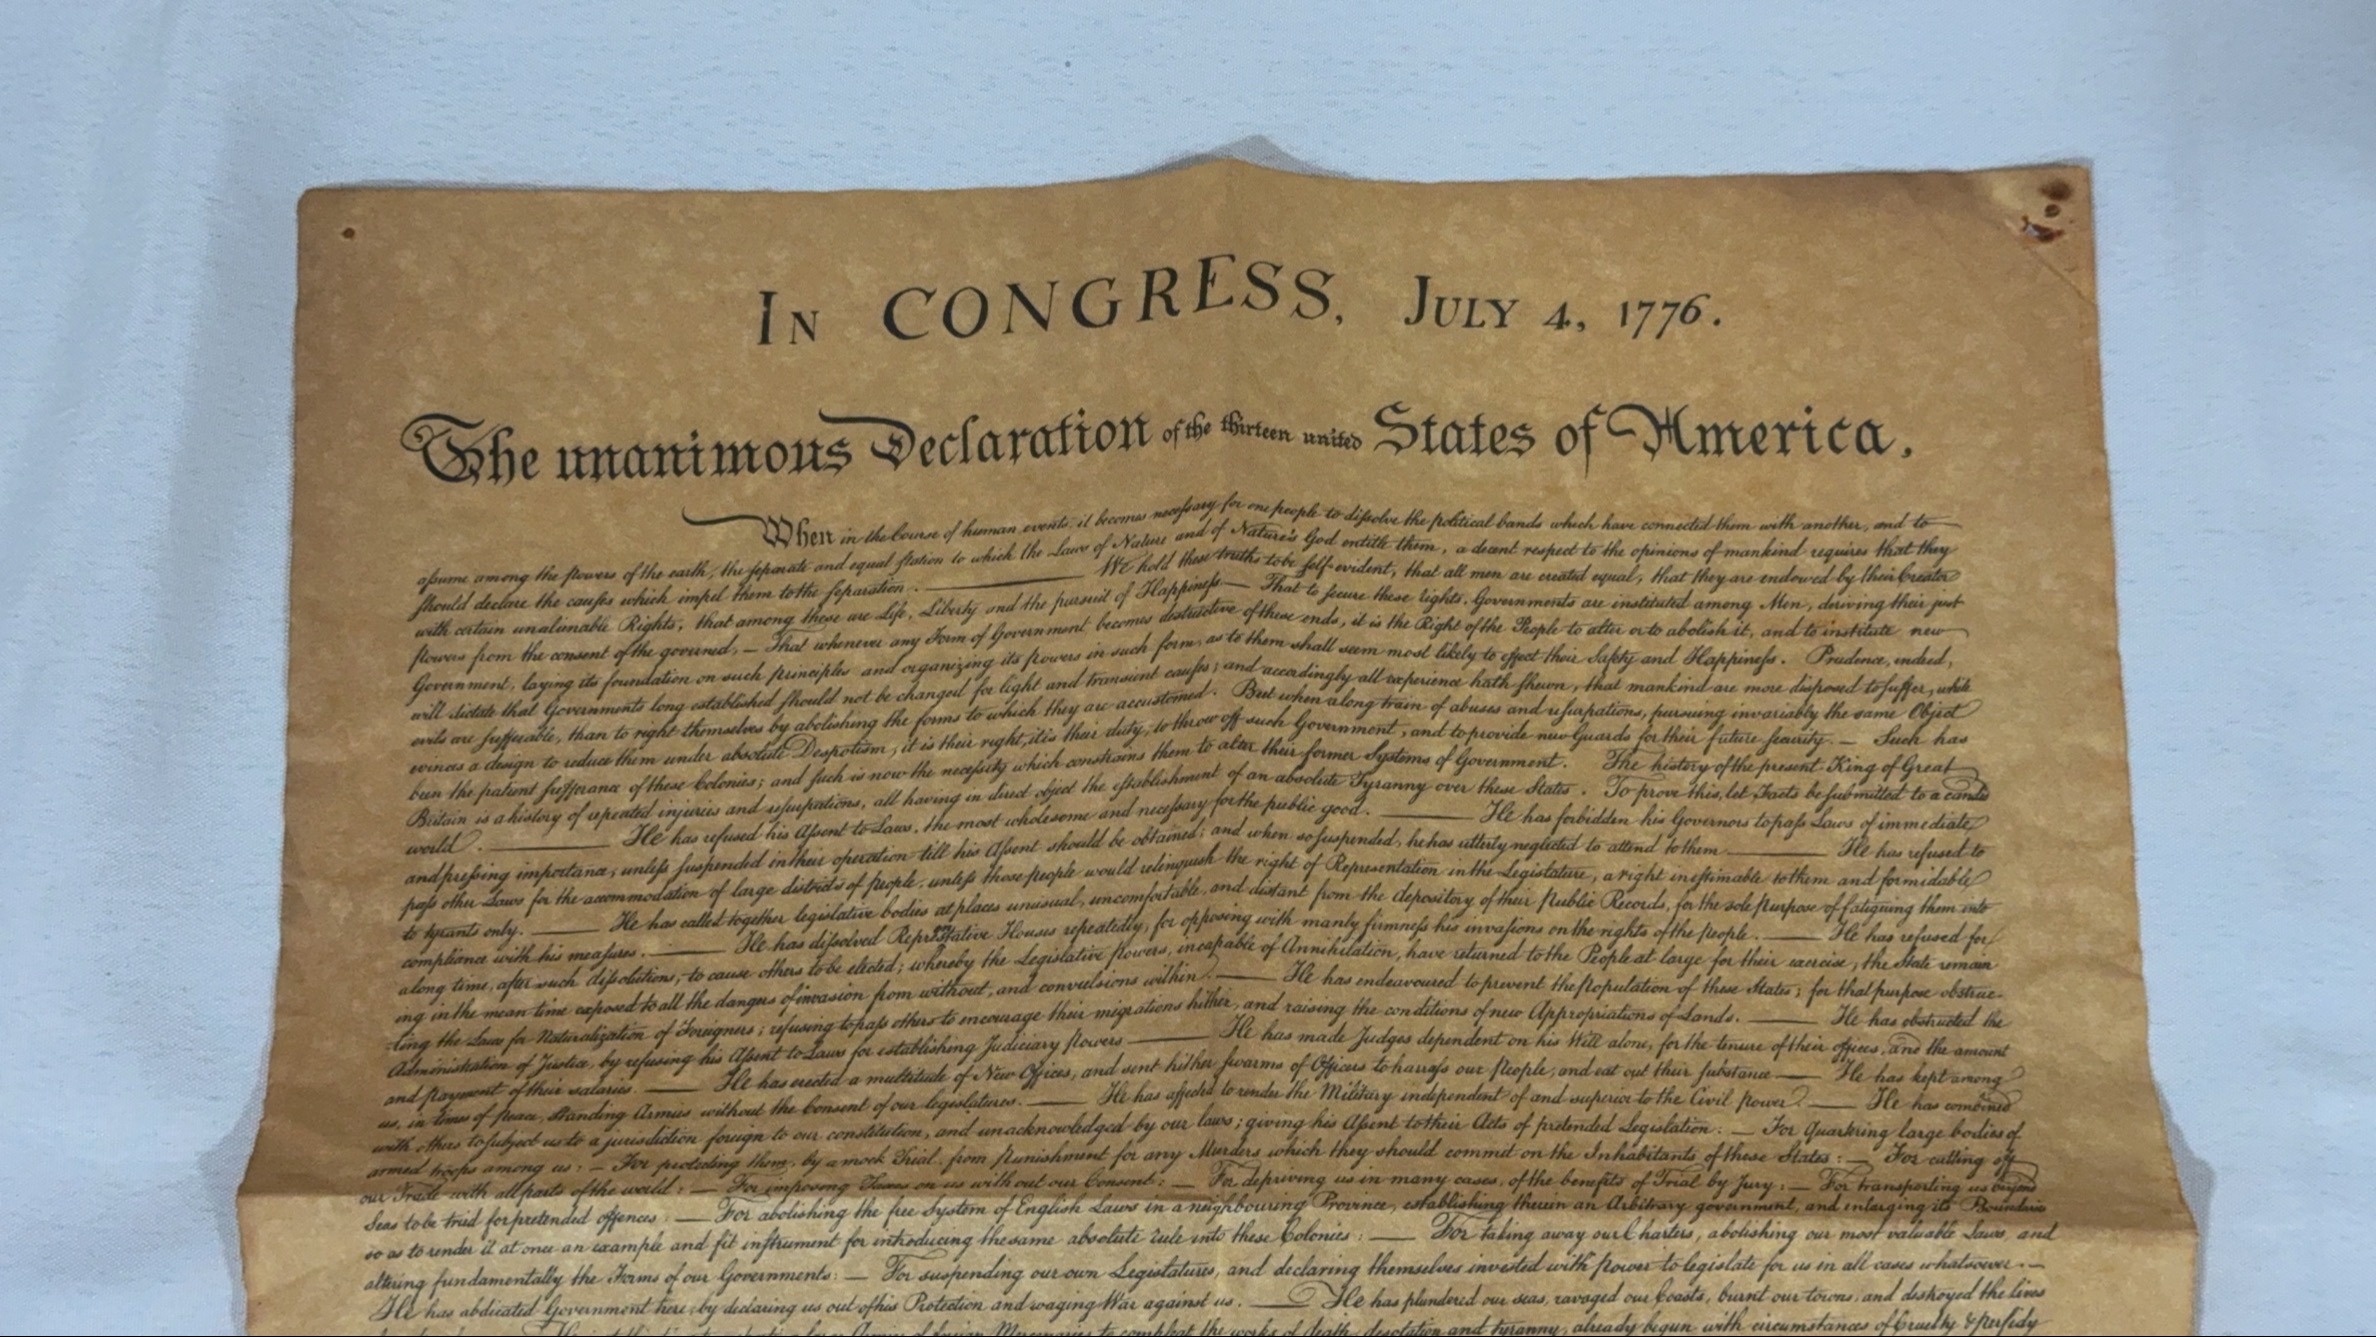 In CONGRESS, July 4, 1776.
The unanimous Declaration of the thirteen united States of America,
When in the Course of human events, it becomes necessary for one people to dissolve the political bands which have connected them with another, and to
assume among the powers of the earth, the separate and equal station to which the Laws of Nature and of Nature's God entitle them, a decent respect to the opinions of mankind requires that they
should declare the causes which impel them to the separation. — We hold these truths to be self-evident, that all men are created equal, that they are endowed by their Creator
with certain unalienable Rights, that among these are Life, Liberty and the pursuit of Happiness.— That to secure these rights, Governments are instituted among Men, deriving their just
powers from the consent of the governed, — That whenever any Form of Government becomes destructive of these ends, it is the Right of the People to alter or to abolish it, and to institute new
Government, laying its foundation on such principles and organizing its powers in such form, as to them shall seem most likely to effect their Safety and Happiness. Prudence, indeed,
will dictate that Governments long established should not be changed for light and transient causes; and accordingly all experience hath shewn, that mankind are more disposed to suffer, while
evils are sufferable, than to right themselves by abolishing the forms to which they are accustomed. But when a long train of abuses and usurpations, pursuing invariably the same Object
evinces a design to reduce them under absolute Despotism, it is their right, it is their duty, to throw off such Government, and to provide new Guards for their future security. — Such has
been the patient sufferance of these Colonies; and such is now the necessity which constrains them to alter their former Systems of Government. The history of the present King of Great
Britain is a history of repeated injuries and usurpations, all having in direct object the establishment of an absolute Tyranny over these States. To prove this, let Facts be submitted to a candid
world. — He has refused his Assent to Laws, the most wholesome and necessary for the public good. — He has forbidden his Governors to pass Laws of immediate
and pressing importance, unless suspended in their operation till his Assent should be obtained; and when so suspended, he has utterly neglected to attend to them — He has refused to
pass other Laws for the accommodation of large districts of people, unless those people would relinquish the right of Representation in the Legislature, a right inestimable to them and formidable
to tyrants only. — He has called together legislative bodies at places unusual, uncomfortable, and distant from the depository of their Public Records, for the sole Purpose of fatiguing them into
compliance with his measures. — He has dissolved Representative Houses repeatedly, for opposing with manly firmness his invasions on the rights of the People. — He has refused for
a long time, after such dissolutions, to cause others to be elected; whereby the Legislative Powers, incapable of Annihilation, have returned to the People at large for their exercise; the State remain
ing in the mean time exposed to all the dangers of invasion from without, and convulsions within. — He has endeavoured to prevent the Population of these States; for that purpose obstruc-
ting the Laws for Naturalization of Foreigners; refusing to pass others to encourage their migrations hither, and raising the conditions of new Appropriations of Lands. — He has obstructed the
Administration of Justice, by refusing his Assent to Laws for establishing Judiciary Powers — He has made Judges dependent on his Will alone, for the tenure of their offices, and the amount
and payment of their salaries. — He has erected a multitude of New Offices, and sent hither swarms of Officers to harrass our People, and eat out their substance — He has kept among
us, in times of peace, Standing Armies without the Consent of our legislatures. — He has affected to render the Military independent of and superior to the Civil Power. — He has combined
with others to subject us to a jurisdiction foreign to our constitution, and unacknowledged by our laws; giving his Assent to their Acts of pretended Legislation: — For Quartering large bodies of
armed troops among us: — For protecting them, by a mock Trial, from Punishment for any Murders which they should commit on the Inhabitants of these States: — For cutting off
our Trade with all parts of the world: — For imposing Taxes on us without our Consent: — For depriving us in many cases, of the benefits of Trial by Jury: — For transporting us beyond
Seas to be tried for pretended offences — For abolishing the free System of English Laws in a neighbouring Province, establishing therein an Arbitrary government, and enlarging its Boundaries
so as to render it at once an example and fit instrument for introducing the same absolute rule into these Colonies: — For taking away our Charters, abolishing our most valuable Laws, and
altering fundamentally the Forms of our Governments: — For suspending our own Legislatures, and declaring themselves invested with power to legislate for us in all cases whatsoever. —
He has abdicated Government here, by declaring us out of his Protection and waging War against us. — He has plundered our seas, ravaged our Coasts, burnt our towns, and destroyed the lives
Armies of foreign Mercenaries to compleat the works of death, desolation and tyranny, already begun with circumstances of Cruelty & perfidy